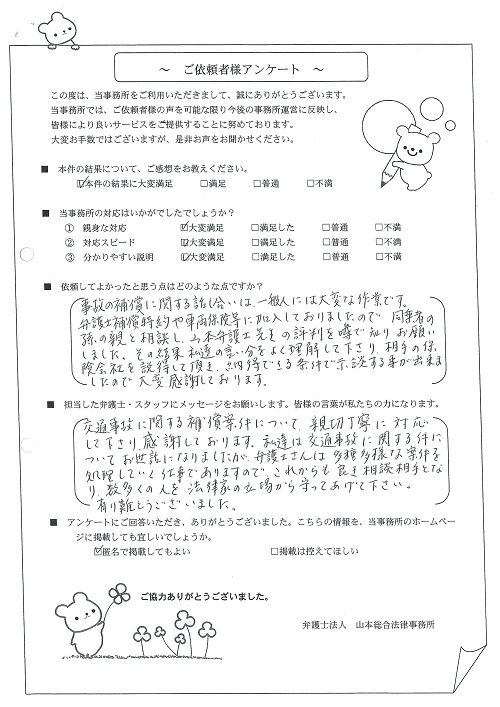 ～ ご依頼者様アンケート ～
この度は、当事務所をご利用いただきまして、誠にありがとうございます。
当事務所では、ご依頼者様の声を可能な限り今後の事務所運営に反映し、
皆様により良いサービスをご提供することに努めております。
大変お手数ではございますが、是非お声をお聞かせください。
■ 本件の結果について、ご感想をお教えください。
☑本件の結果に大変満足 □満足 □普通 □不満
■ 当事務所の対応はいかがでしたでしょうか？
① 親身な対応 ☑大変満足 □満足した □普通 □不満
② 対応スピード ☑大変満足 □満足した □普通 □不満
③ 分かりやすい説明 ☑大変満足 □満足した □普通 □不満
■ 依頼してよかったと思う点はどのような点ですか？
事故の補償に関する話し合いは、一般人には大変な作業です。
弁護士補償特約や車両保険等に加入しておりましたので、同乗者の
孫の親と相談し、山本弁護士先生の評判を噂で知り お願い
しました。その結果 私達の言い分をよく理解して下さり、相手の保
険会社を説得して頂き、納得できる条件で示談する事が出来ま
したので大変感謝しております。
■ 担当した弁護士・スタッフにメッセージをお願いします。皆様の言葉が私たちの力になります。
交通事故に関する補償案件について、親切丁寧に対応
して下さり感謝しております。私達は交通事故に関する件に
ついてお世話になりましたが、弁護士さんは多種多様な案件を
処理していく仕事でありますので、これからも良き相談相手とな
り、数多くの人を法律家の立場から守ってあげて下さい。
有り難とうございました。
■ アンケートにご回答いただき、ありがとうございました。こちらの情報を、当事務所のホームペー
ジに掲載しても宜しいでしょうか。
☑匿名で掲載してもよい □掲載は控えてほしい
ご協力ありがとうございました。
弁護士法人 山本総合法律事務所